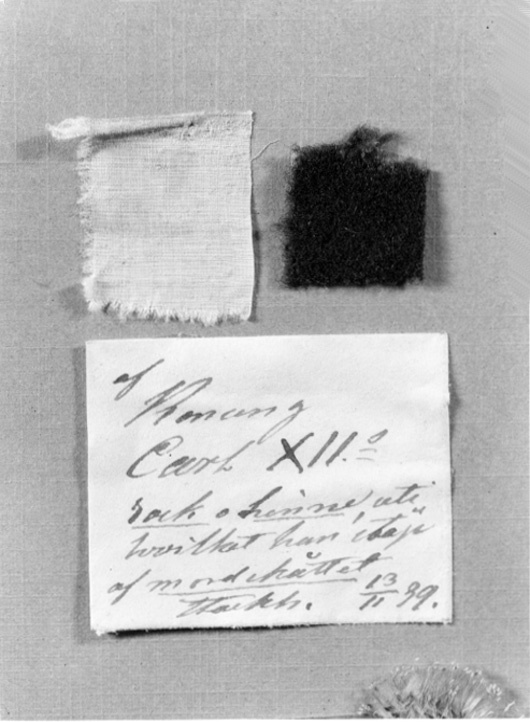 af
Konung
Carl XII.s
rock o linne, uti
hvilket han
af mordskottet
Stockh. 13/11 39.